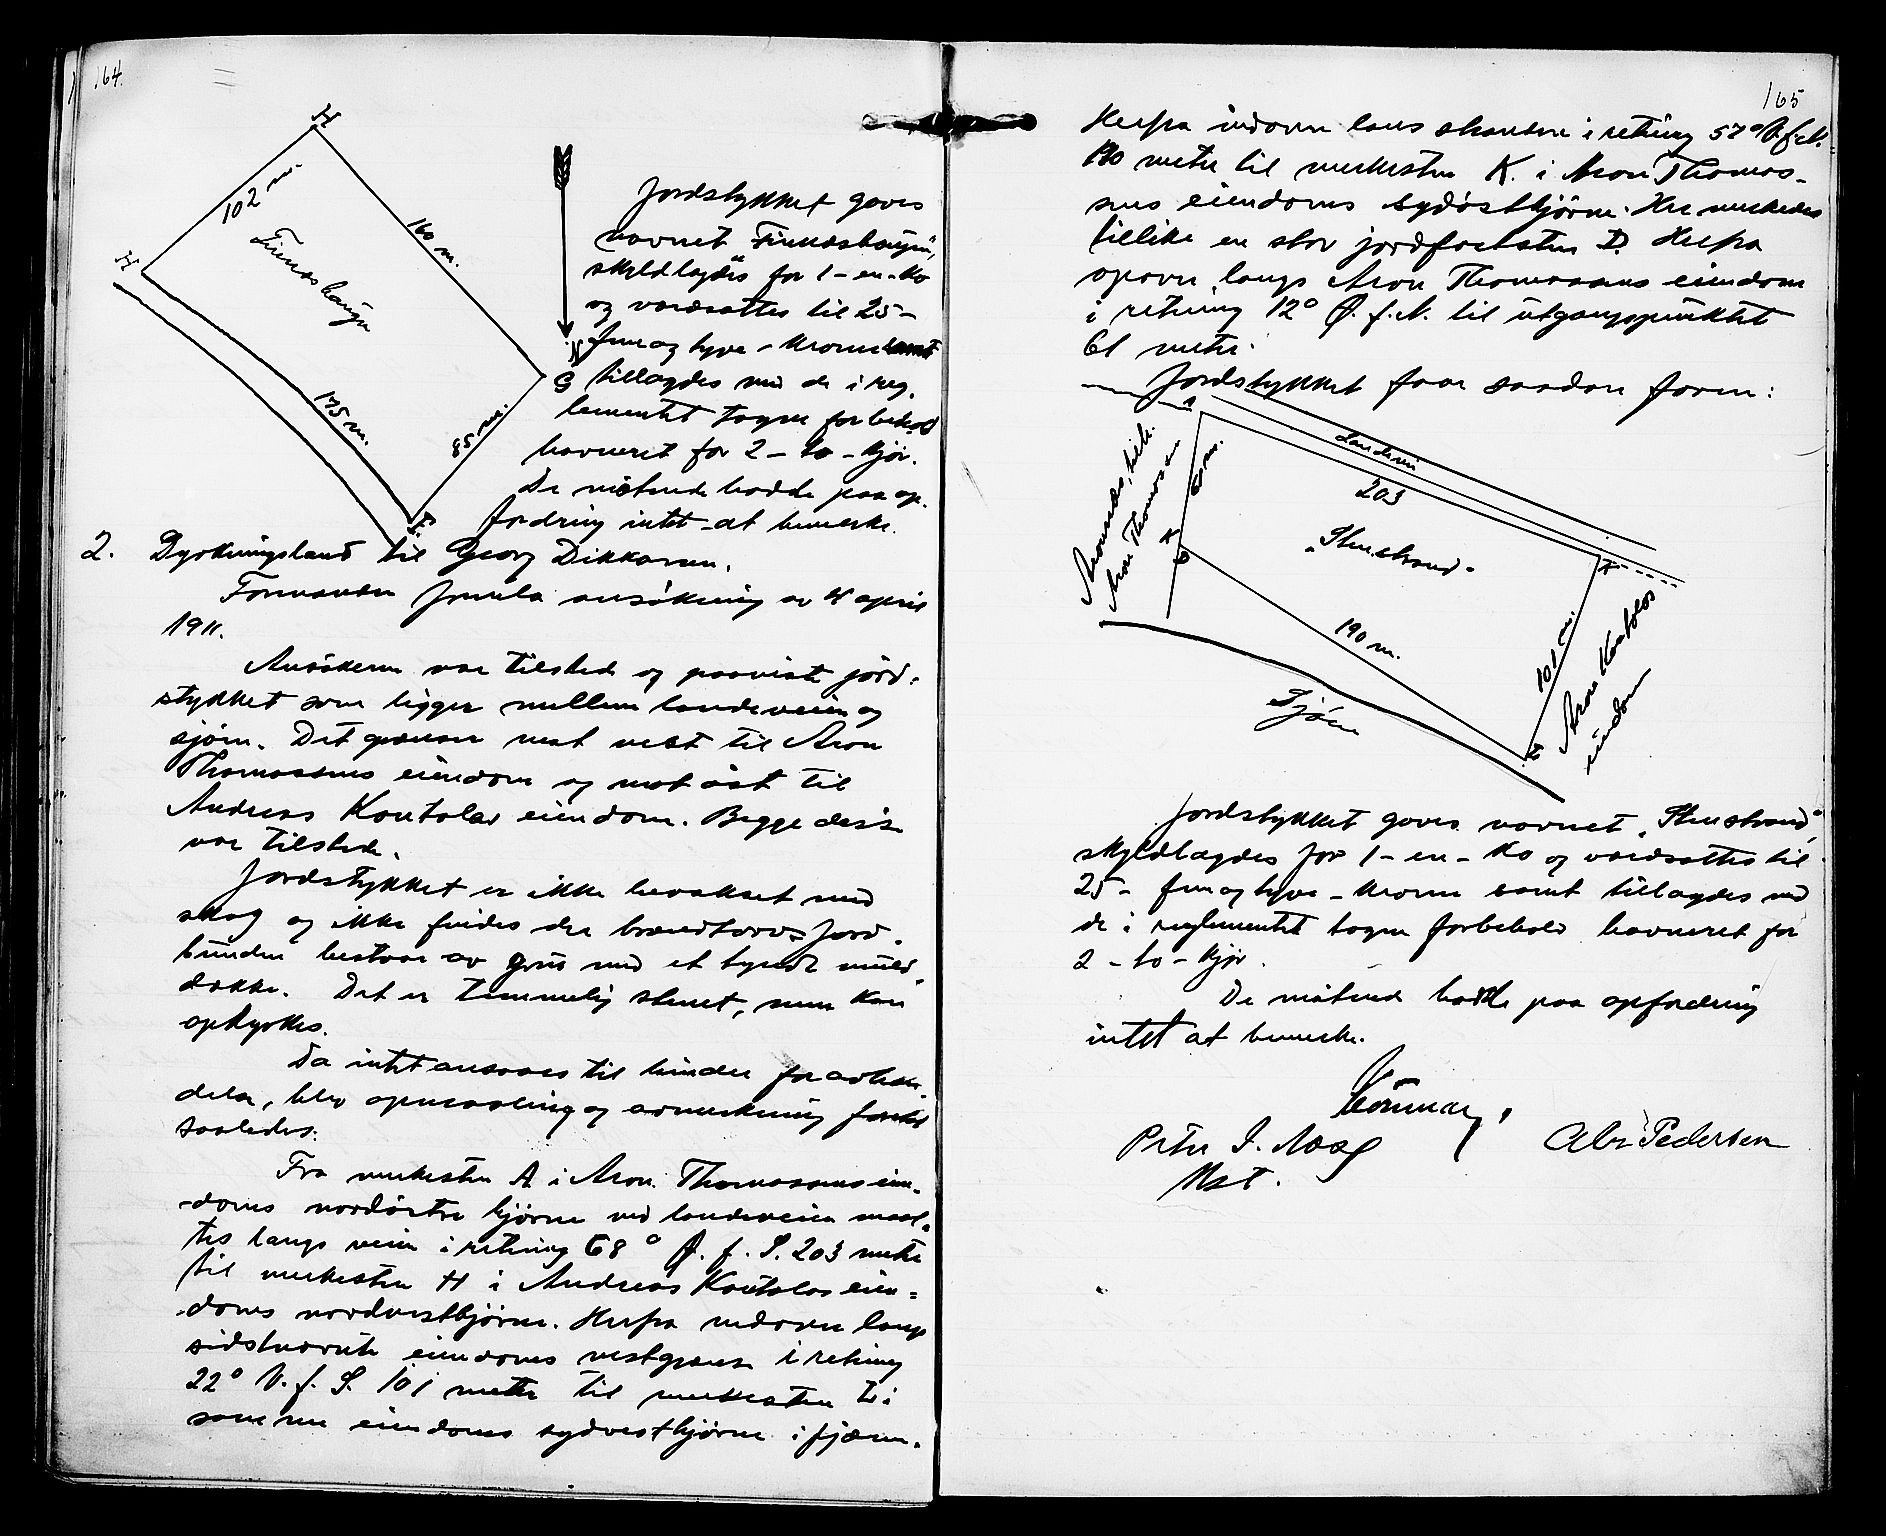 164.
H
102 m.
H
160 m.
175 m.
85 m.
G
N
Jordstykket gaves
navnet „Finneshaugen“,
skyldlagdes for 1 - en - ko
og værdsattes til 25 -
fem og tyve - kroner samt
tillagdes med de i reg.
lementet tagne forbehold
havneret for 2 - to - kjør.
De mötende hadde paa op.
fordring intet at bemerke.
2. Dyrkningsland til Georg Dikkanen.
Formannen fremla ansökning av 4 april
1911.
Ansökeren var tilstede og paaviste jord-
stykket som ligger mellem landeveien og
sjöen. Det grænser mot vest til Aron
Thomassens eiendom og mot öst til
Andreas Koutolas eiendom. Begge disse
var tilstede.
Jordstykket er ikke bevokset med
skog og ikke findes der brændtorv. Jord-
bunden bestaar av grus med et tyndt muld
dække. Det er temmelig stenet, men kan
opdyrkes.
Da intet ansaaes til hinder for avhæn-
delse, blev opmaaling og avmerkning foretat
saaledes:
Fra merkesten A i Aron Thomassens eien-
doms nordöstre hjørne ved landeveien maal-
tes langs veien i retning 68° Ø. f. S. 203 meter
til merkesten H i Andreas Koutolas eien-
doms nordvesthjørne. Herfra nedover langs
sidstnævnte eiendoms vestgrænse i retning
22° V. f. S. 101 meter til merkesten L i
samme eiendoms sydvesthjørne i fjæren.
165
Herfra indover langs stranden i retning 57° V. f. N.
190 meter til merkesten K. i Aron Thomas-
sens eiendoms sydösthjörne. Her merkedes
tillike en stor jordfast sten D. Herfra
opover langs Aron Thomassens eiendom
i retning 12° Ø. f. N. til utgangspunktet
61 meter.
Jordstykket faar saadan form:
Landevei
203
61 m.
Aron Thomassen
K
„Stenstrand“
H
190 m.
101 m.
L
Sjöen
eiendom
Jordstykket gaves navnet „Stenstrand“,
skyldlagdes for 1 - en - ko og værdsattes til
25 - fem og tyve - kroner samt tillagdes med
de i reglementet tagne forbehold havneret for
2 - to - kjør.
De mötende hadde paa opfordring
intet at bemerke.
Peter I. Næss
Mst.
Abr. Pedersen